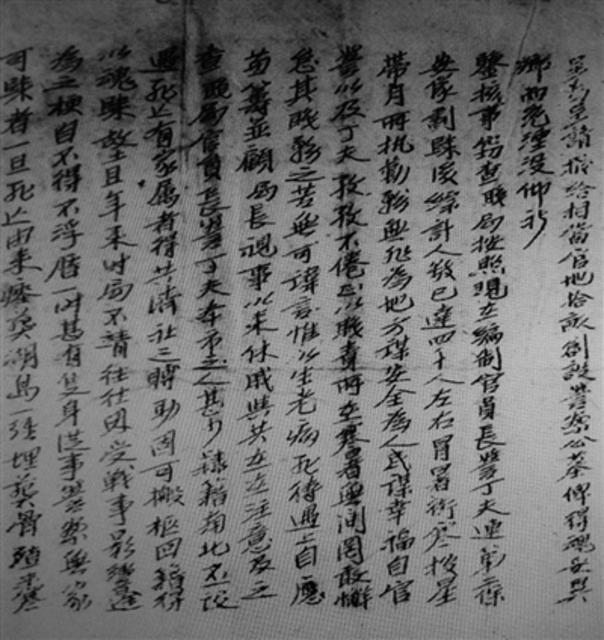 呈為呈請撥給相當官地拾畝創設警察公墓俾得魂安異
鄉而免湮沒仰祈
鑒核事竊查職局按照現在編制官員長警丁夫連第二保
安隊劃歸後綜計人數已達四千人左右冒暑衝寒披星
帶月所執勤務無非為地方謀安全為人民謀幸福自官
警以及丁夫孜孜不倦只以職責所在寒暑無間罔敢懈
怠其職務之苦無可諱言惟以生老病死待遇上自應
籌並顧局長視事以來休戚與共在在注意及之
查職局官員長警丁夫本市之人甚少隸籍南北不設
遇死亡有家屬者得共濟社之賻助固可搬柩回籍得
以魂歸故土且年來時局不靖往往因受戰事影響途
為之梗自不得不浮厝一時甚有隻身從事警察無家
可歸者一旦死亡由來瘞葬湖島一經埋葬骨殖未寒